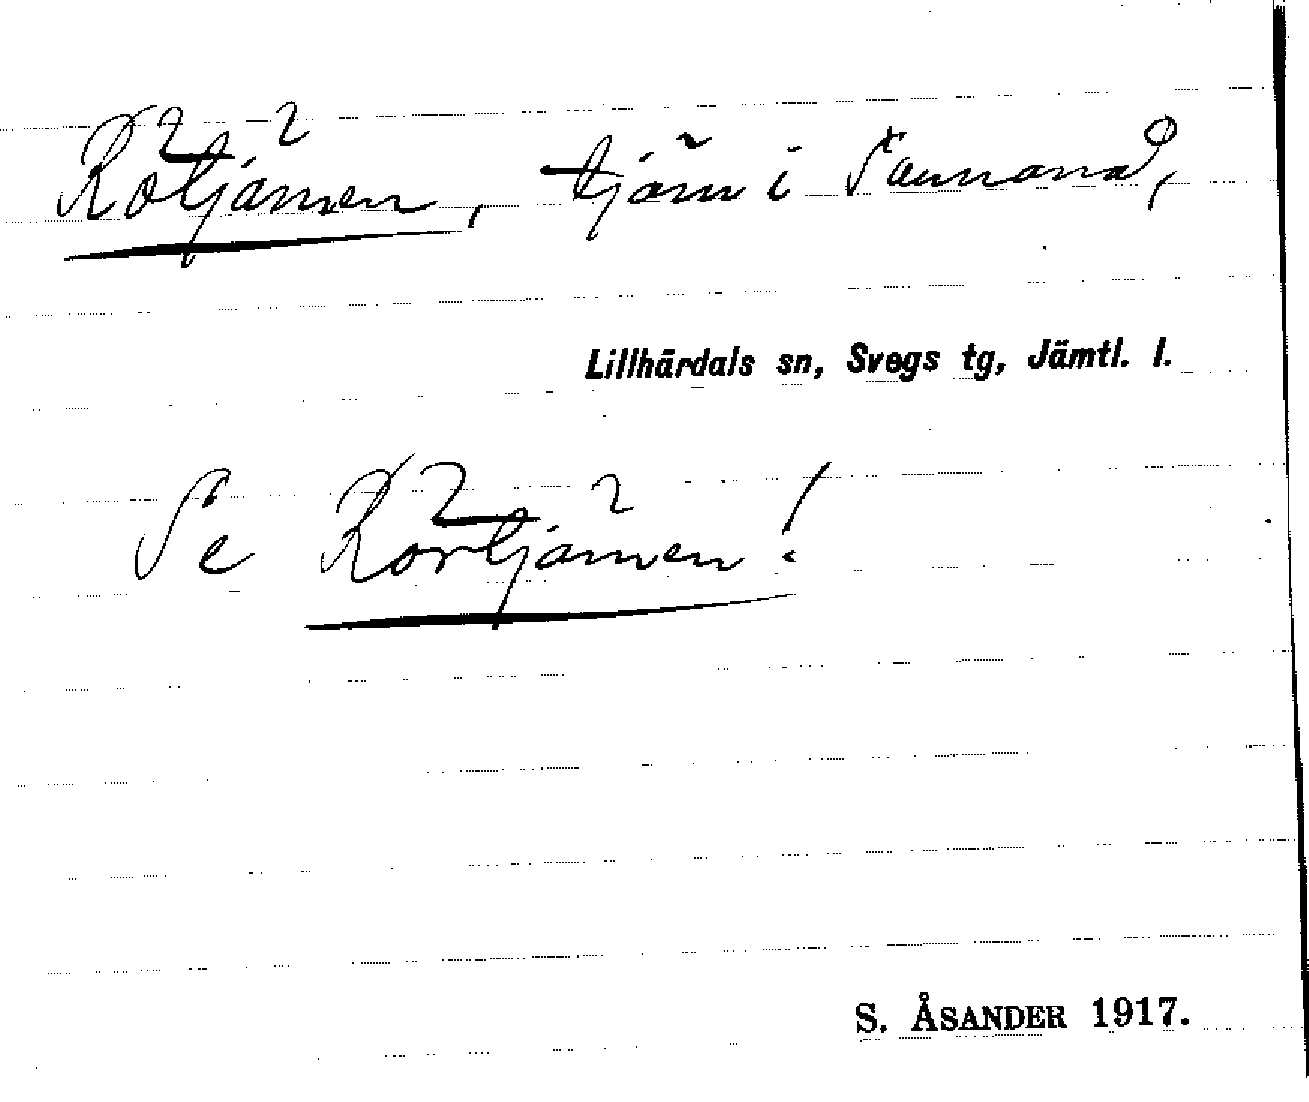 Rötjärnen, tjärn i Sannanå,
Lillhärdals sn, Svegs tg, Jämtl. l.
Se Rörtjärnen!
S. ÅSANDER 1917.